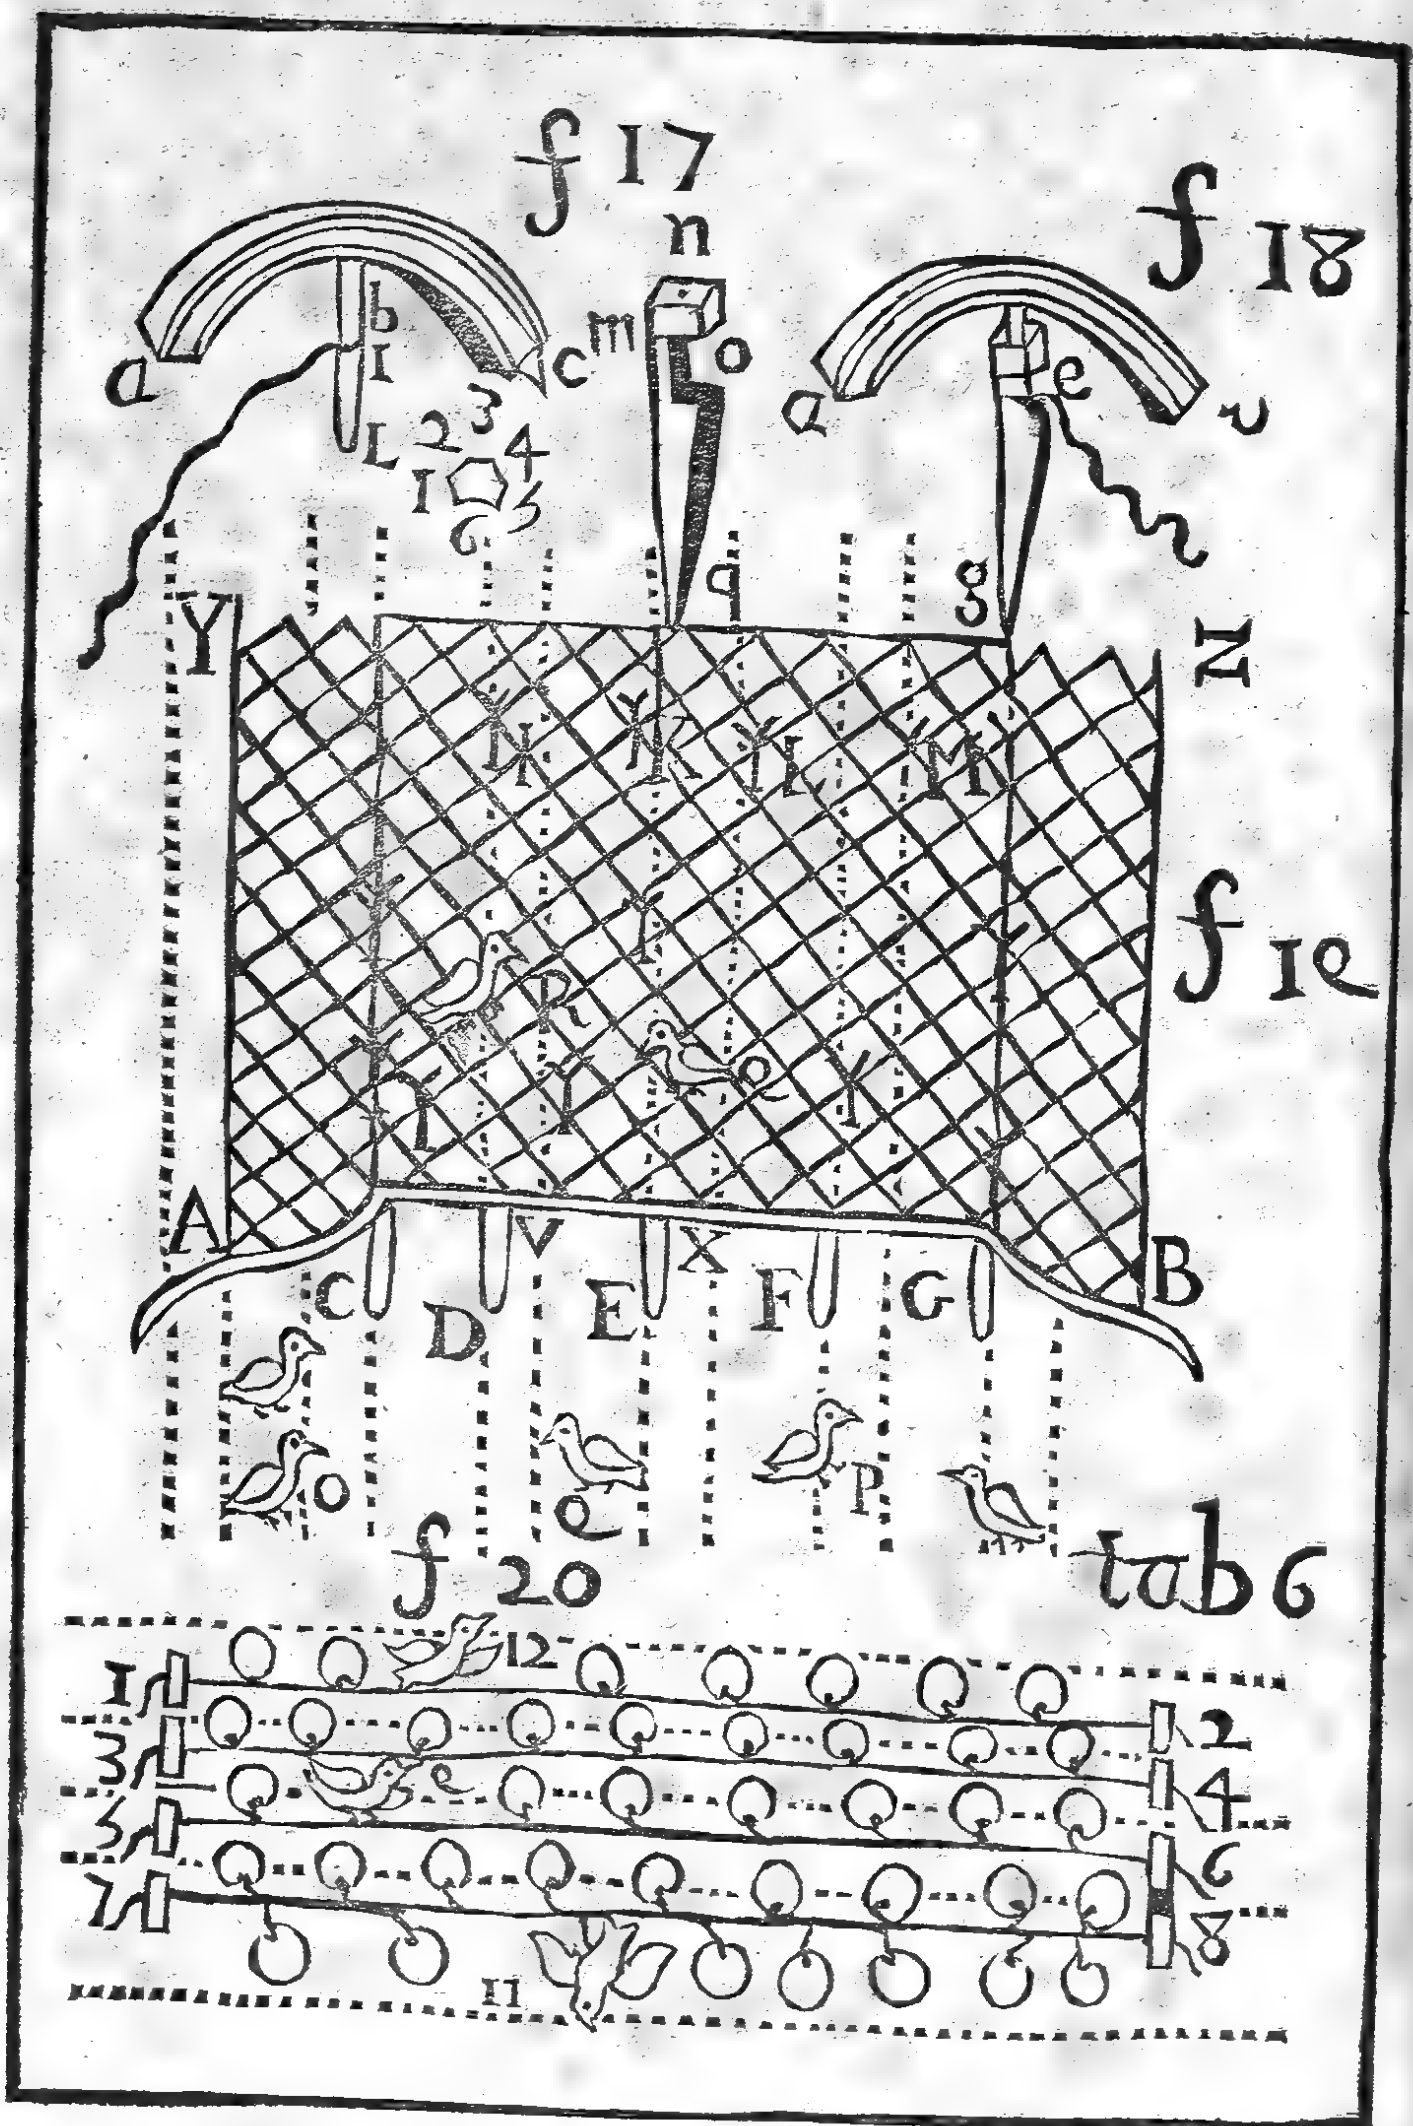 f 17
n
f 18
b
a
I
c
m
o
a
e
L
2 3 4
I
5
6
q
g
Y
N
H
K
L
M
f 19
R
e
A
B
C
D
V
E
X
F
G
O
e
P
f 20
tab 6
1
12
2
3
e
4
5
6
7
8
11